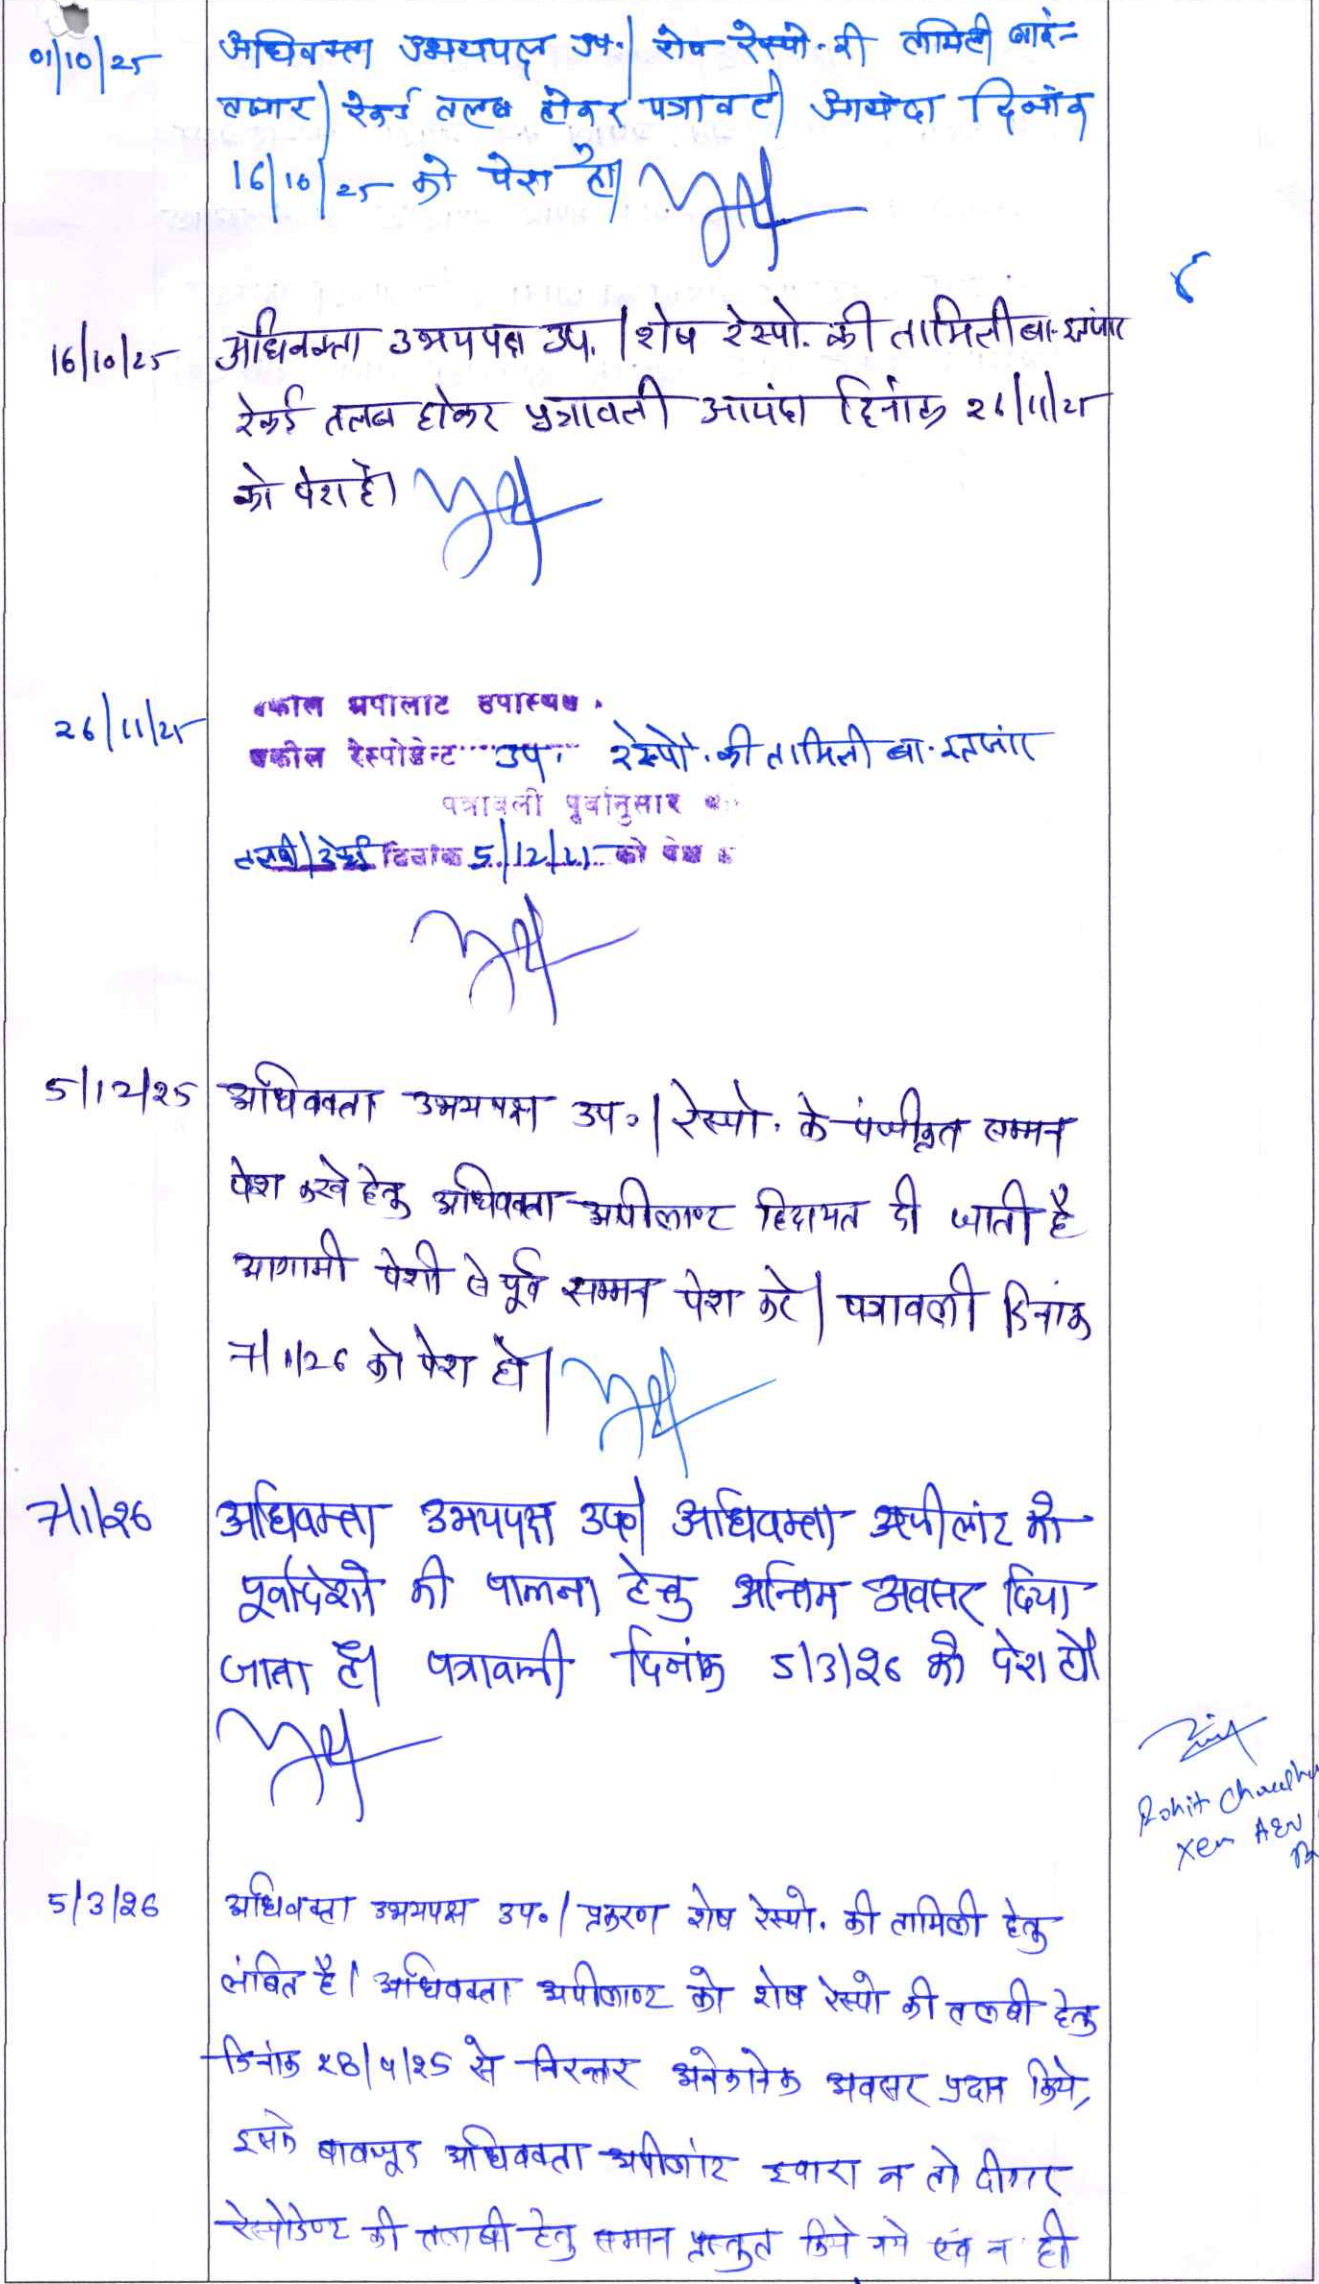 01/10/25 अधिवक्ता उभयपक्ष उप.| शेष रेस्पो. की तामिली बाइं-
तजार| रेकर्ड तलब होकर पत्रावली आयंदा दिनांक
16/10/25 को पेश हो|
16/10/25 अधिवक्ता उभयपक्ष उप. | शेष रेस्पो. की तामिली बा-इन्तजार
रेकर्ड तलब होकर पत्रावली आयंदा दिनांक 26/11/25
को पेश हो।
26/11/25 वकील अपीलांट उपस्थित.
वकील रेस्पोडेन्ट उप. रेस्पो. की तामिली बा. इन्तजार
पत्रावली पूर्वानुसार
तलबी/रेकर्ड दिनांक 5/12/25 को पेश
5/12/25 अधिवक्ता उभयपक्ष उप०| रेस्पो. के पंजीकृत सम्मन
पेश करने हेतु अधिवक्ता अपीलाण्ट हिदायत दी जाती है
आगामी पेशी से पूर्व सम्मन पेश करे| पत्रावली दिनांक
7/1/26 को पेश हो|
7/1/26 अधिवक्ता उभयपक्ष उप०| अधिवक्ता अपीलांट को
पूर्वादेशो की पालना हेतु अन्तिम अवसर दिया
जाता है| पत्रावली दिनांक 5/3/26 को पेश हो|
Rohit Choudhary
Xen
5/3/26 अधिवक्ता उभयपक्ष उप०| प्रकरण शेष रेस्पो. की तामिली हेतु
लंबित है| अधिवक्ता अपीलाण्ट को शेष रेस्पो की तलबी हेतु
दिनांक 28/4/25 से निरन्तर अनेकानेक अवसर प्रदान किये,
इसके बावजूद अधिवक्ता अपीलांट द्वारा न तो दीगर
रेस्पोडेण्ट की तलबी हेतु सम्मन प्रस्तुत किये गये एवं न ही